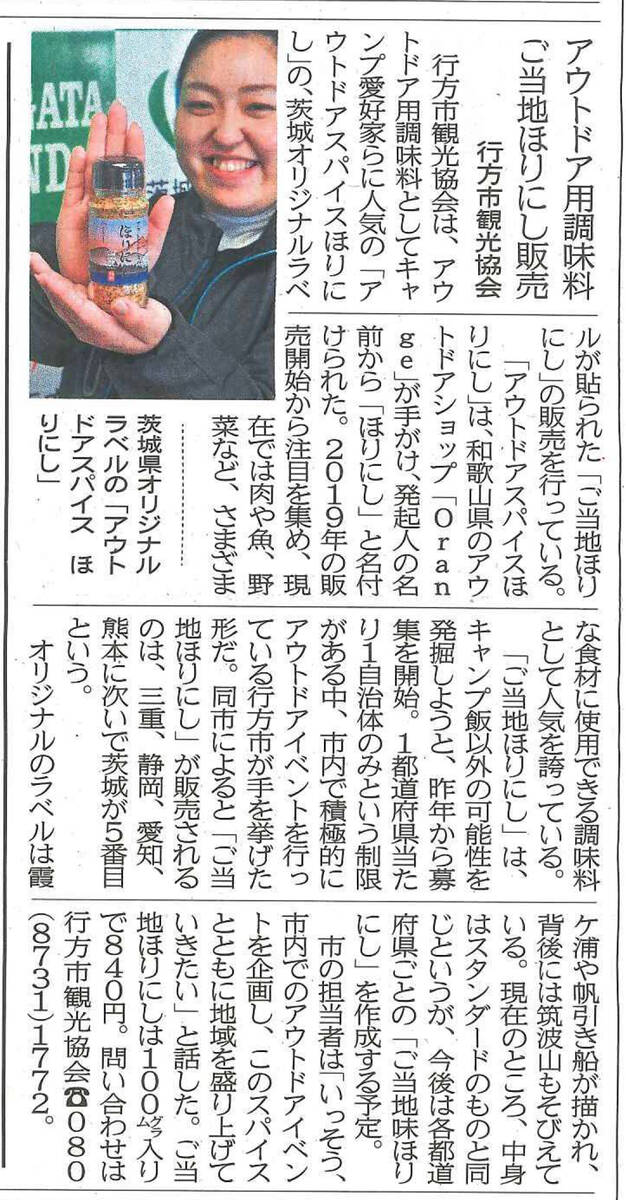 アウトドア用調味料
ご当地ほりにし販売
行方市観光協会
行方市観光協会は、アウ
トドア用調味料としてキャ
ンプ愛好家らに人気の「ア
ウトドアスパイスほりに
し」の、茨城オリジナルラベ
ルが貼られた「ご当地ほり
にし」の販売を行っている。
「アウトドアスパイスほ
りにし」は、和歌山県のアウ
トドアショップ「Oran
ge」が手がけ、発起人の名
前から「ほりにし」と名付
けられた。2019年の販
売開始から注目を集め、現
在では肉や魚、野
菜など、さまざま
な食材に使用できる調味料
として人気を誇っている。
「ご当地ほりにし」は、
キャンプ飯以外の可能性を
発掘しようと、昨年から募
集を開始。1都道府県当た
り1自治体のみという制限
がある中、市内で積極的に
アウトドアイベントを行っ
ている行方市が手を挙げた
形だ。同市によると「ご当
地ほりにし」が販売される
のは、三重、静岡、愛知、
熊本に次いで茨城が5番目
という。
オリジナルのラベルは霞
ケ浦や帆引き船が描かれ、
背後には筑波山もそびえて
いる。現在のところ、中身
はスタンダードのものと同
じというが、今後は各都道
府県ごとの「ご当地味ほり
にし」を作成する予定。
市の担当者は「いっそう、
市内でのアウトドアイベン
トを企画し、このスパイス
とともに地域を盛り上げて
いきたい」と話した。ご当
地ほりにしは100グラム入り
で840円。問い合わせは
行方市観光協会☎080
(8731)1772。
茨城県オリジナル
ラベルの「アウト
ドアスパイス ほ
りにし」
GATA
ND
茨城
ほりにし